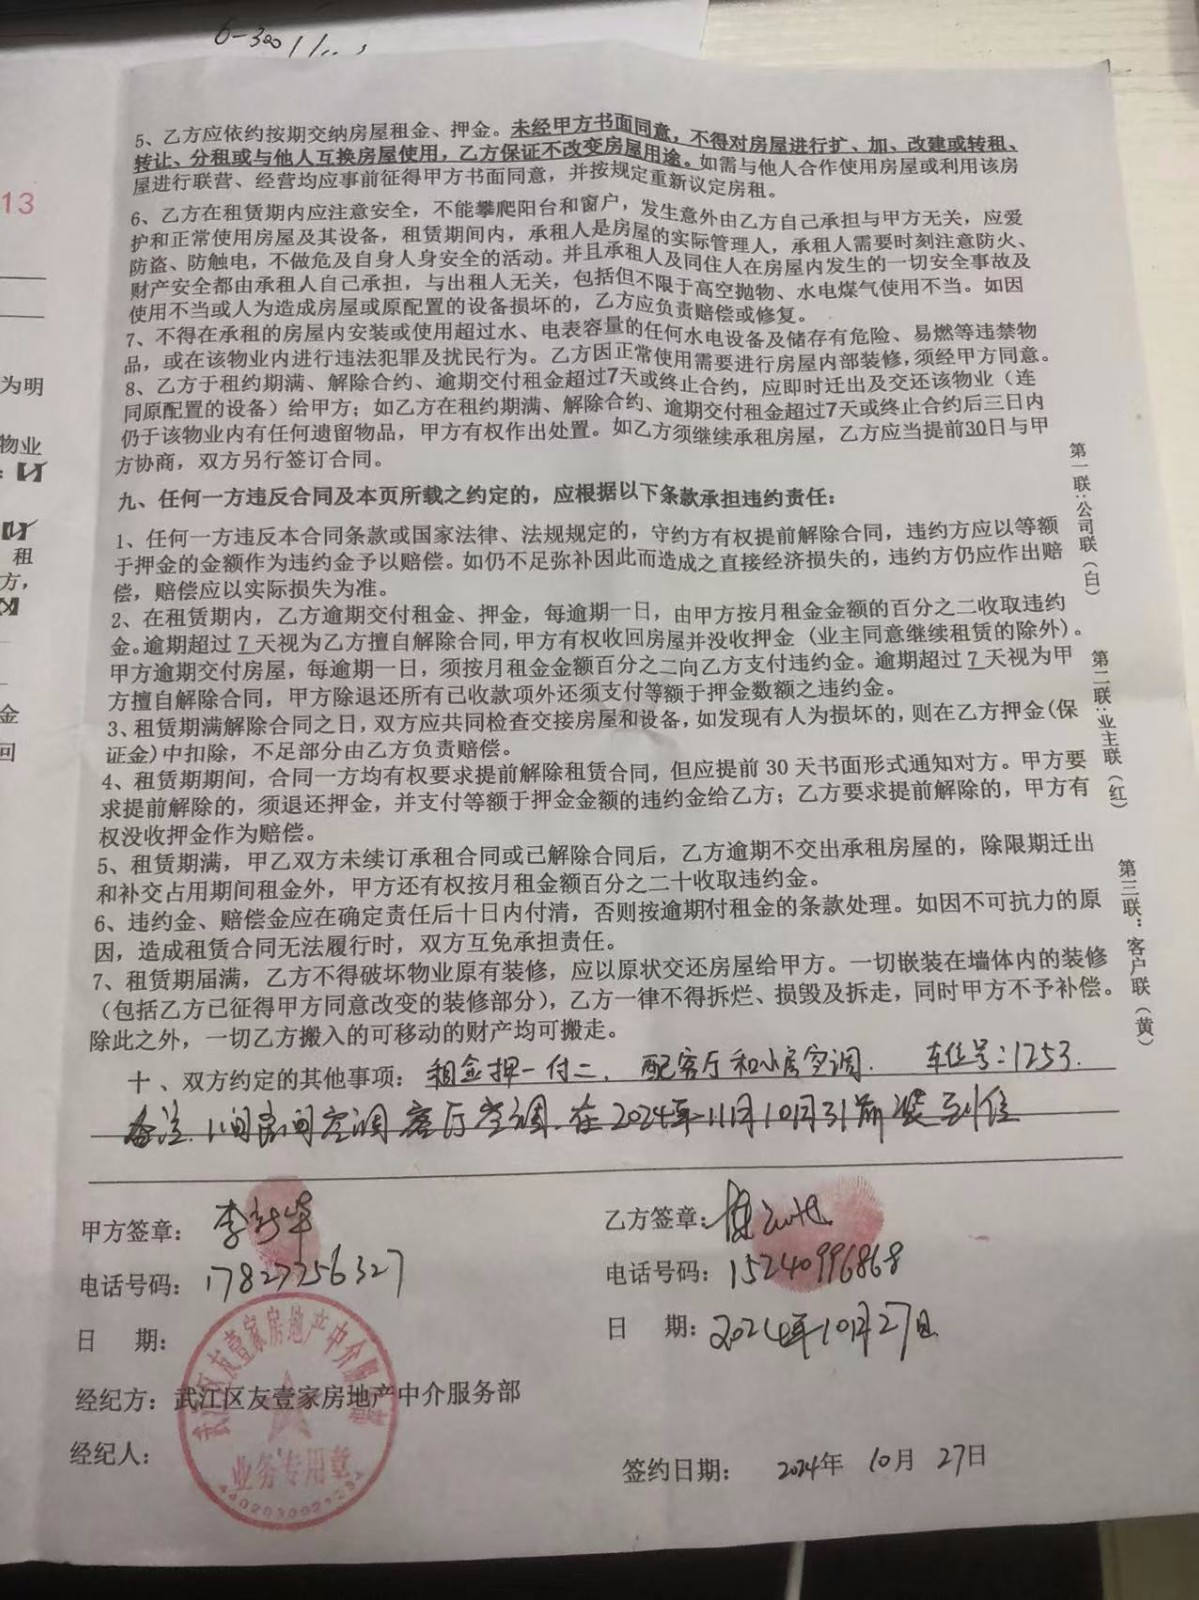 6-300
13
为明
物业
租
方，
金
回
5、乙方应依约按期交纳房屋租金、押金。未经甲方书面同意，不得对房屋进行扩、加、改建或转租、
转让、分租或与他人互换房屋使用，乙方保证不改变房屋用途。如需与他人合作使用房屋或利用该房
屋进行联营、经营均应事前征得甲方书面同意，并按规定重新议定房租。
6、乙方在租赁期内应注意安全，不能攀爬阳台和窗户，发生意外由乙方自己承担与甲方无关，应爱
护和正常使用房屋及其设备，租赁期间内，承租人是房屋的实际管理人，承租人需要时刻注意防火、
防盗、防触电，不做危及自身人身安全的活动。并且承租人及同住人在房屋内发生的一切安全事故及
财产安全都由承租人自己承担，与出租人无关，包括但不限于高空抛物、水电煤气使用不当。如因
使用不当或人为造成房屋或原配置的设备损坏的，乙方应负责赔偿或修复。
7、不得在承租的房屋内安装或使用超过水、电表容量的任何水电设备及储存有危险、易燃等违禁物
品，或在该物业内进行违法犯罪及扰民行为。乙方因正常使用需要进行房屋内部装修，须经甲方同意。
8、乙方于租约期满、解除合约、逾期交付租金超过7天或终止合约，应即时迁出及交还该物业（连
同原配置的设备）给甲方；如乙方在租约期满、解除合约、逾期交付租金超过7天或终止合约后三日内
仍于该物业内有任何遗留物品，甲方有权作出处置。如乙方须继续承租房屋，乙方应当提前30日与甲
方协商，双方另行签订合同。
九、任何一方违反合同及本页所载之约定的，应根据以下条款承担违约责任：
1、任何一方违反本合同条款或国家法律、法规规定的，守约方有权提前解除合同，违约方应以等额
于押金的金额作为违约金予以赔偿。如仍不足弥补因此而造成之直接经济损失的，违约方仍应作出赔
偿，赔偿应以实际损失为准。
2、在租赁期内，乙方逾期交付租金、押金，每逾期一日，由甲方按月租金金额的百分之二收取违约
金。逾期超过 7 天视为乙方擅自解除合同，甲方有权收回房屋并没收押金（业主同意继续租赁的除外）。
甲方逾期交付房屋，每逾期一日，须按月租金金额百分之二向乙方支付违约金。逾期超过 7 天视为甲
方擅自解除合同，甲方除退还所有已收款项外还须支付等额于押金数额之违约金。
3、租赁期满解除合同之日，双方应共同检查交接房屋和设备，如发现有人为损坏的，则在乙方押金(保
证金)中扣除，不足部分由乙方负责赔偿。
4、租赁期期间，合同一方均有权要求提前解除租赁合同，但应提前 30 天书面形式通知对方。甲方要
求提前解除的，须退还押金，并支付等额于押金金额的违约金给乙方；乙方要求提前解除的，甲方有
权没收押金作为赔偿。
5、租赁期满，甲乙双方未续订承租合同或已解除合同后，乙方逾期不交出承租房屋的，除限期迁出
和补交占用期间租金外，甲方还有权按月租金额百分之二十收取违约金。
6、违约金、赔偿金应在确定责任后十日内付清，否则按逾期付租金的条款处理。如因不可抗力的原
因，造成租赁合同无法履行时，双方互免承担责任。
7、租赁期届满，乙方不得破坏物业原有装修，应以原状交还房屋给甲方。一切嵌装在墙体内的装修
（包括乙方已征得甲方同意改变的装修部分），乙方一律不得拆烂、损毁及拆走，同时甲方不予补偿。
除此之外，一切乙方搬入的可移动的财产均可搬走。
十、双方约定的其他事项：租金押一付二、配客厅和小房空调. 车位号:1253.
备注. 1间房间空调 客厅空调. 在2024年11月10月31前 装到位
甲方签章：李新华
电话号码：17827256327
日 期：
乙方签章：
电话号码：15240996868
日 期：2024年10月27日
经纪方：武江区友壹家房地产中介服务部
经纪人：
签约日期： 2024年 10月 27日
武江区友壹家房地产中介服务部
业务专用章
第一联：公司联（白）
第二联：业主联（红）
第三联：客户联（黄）